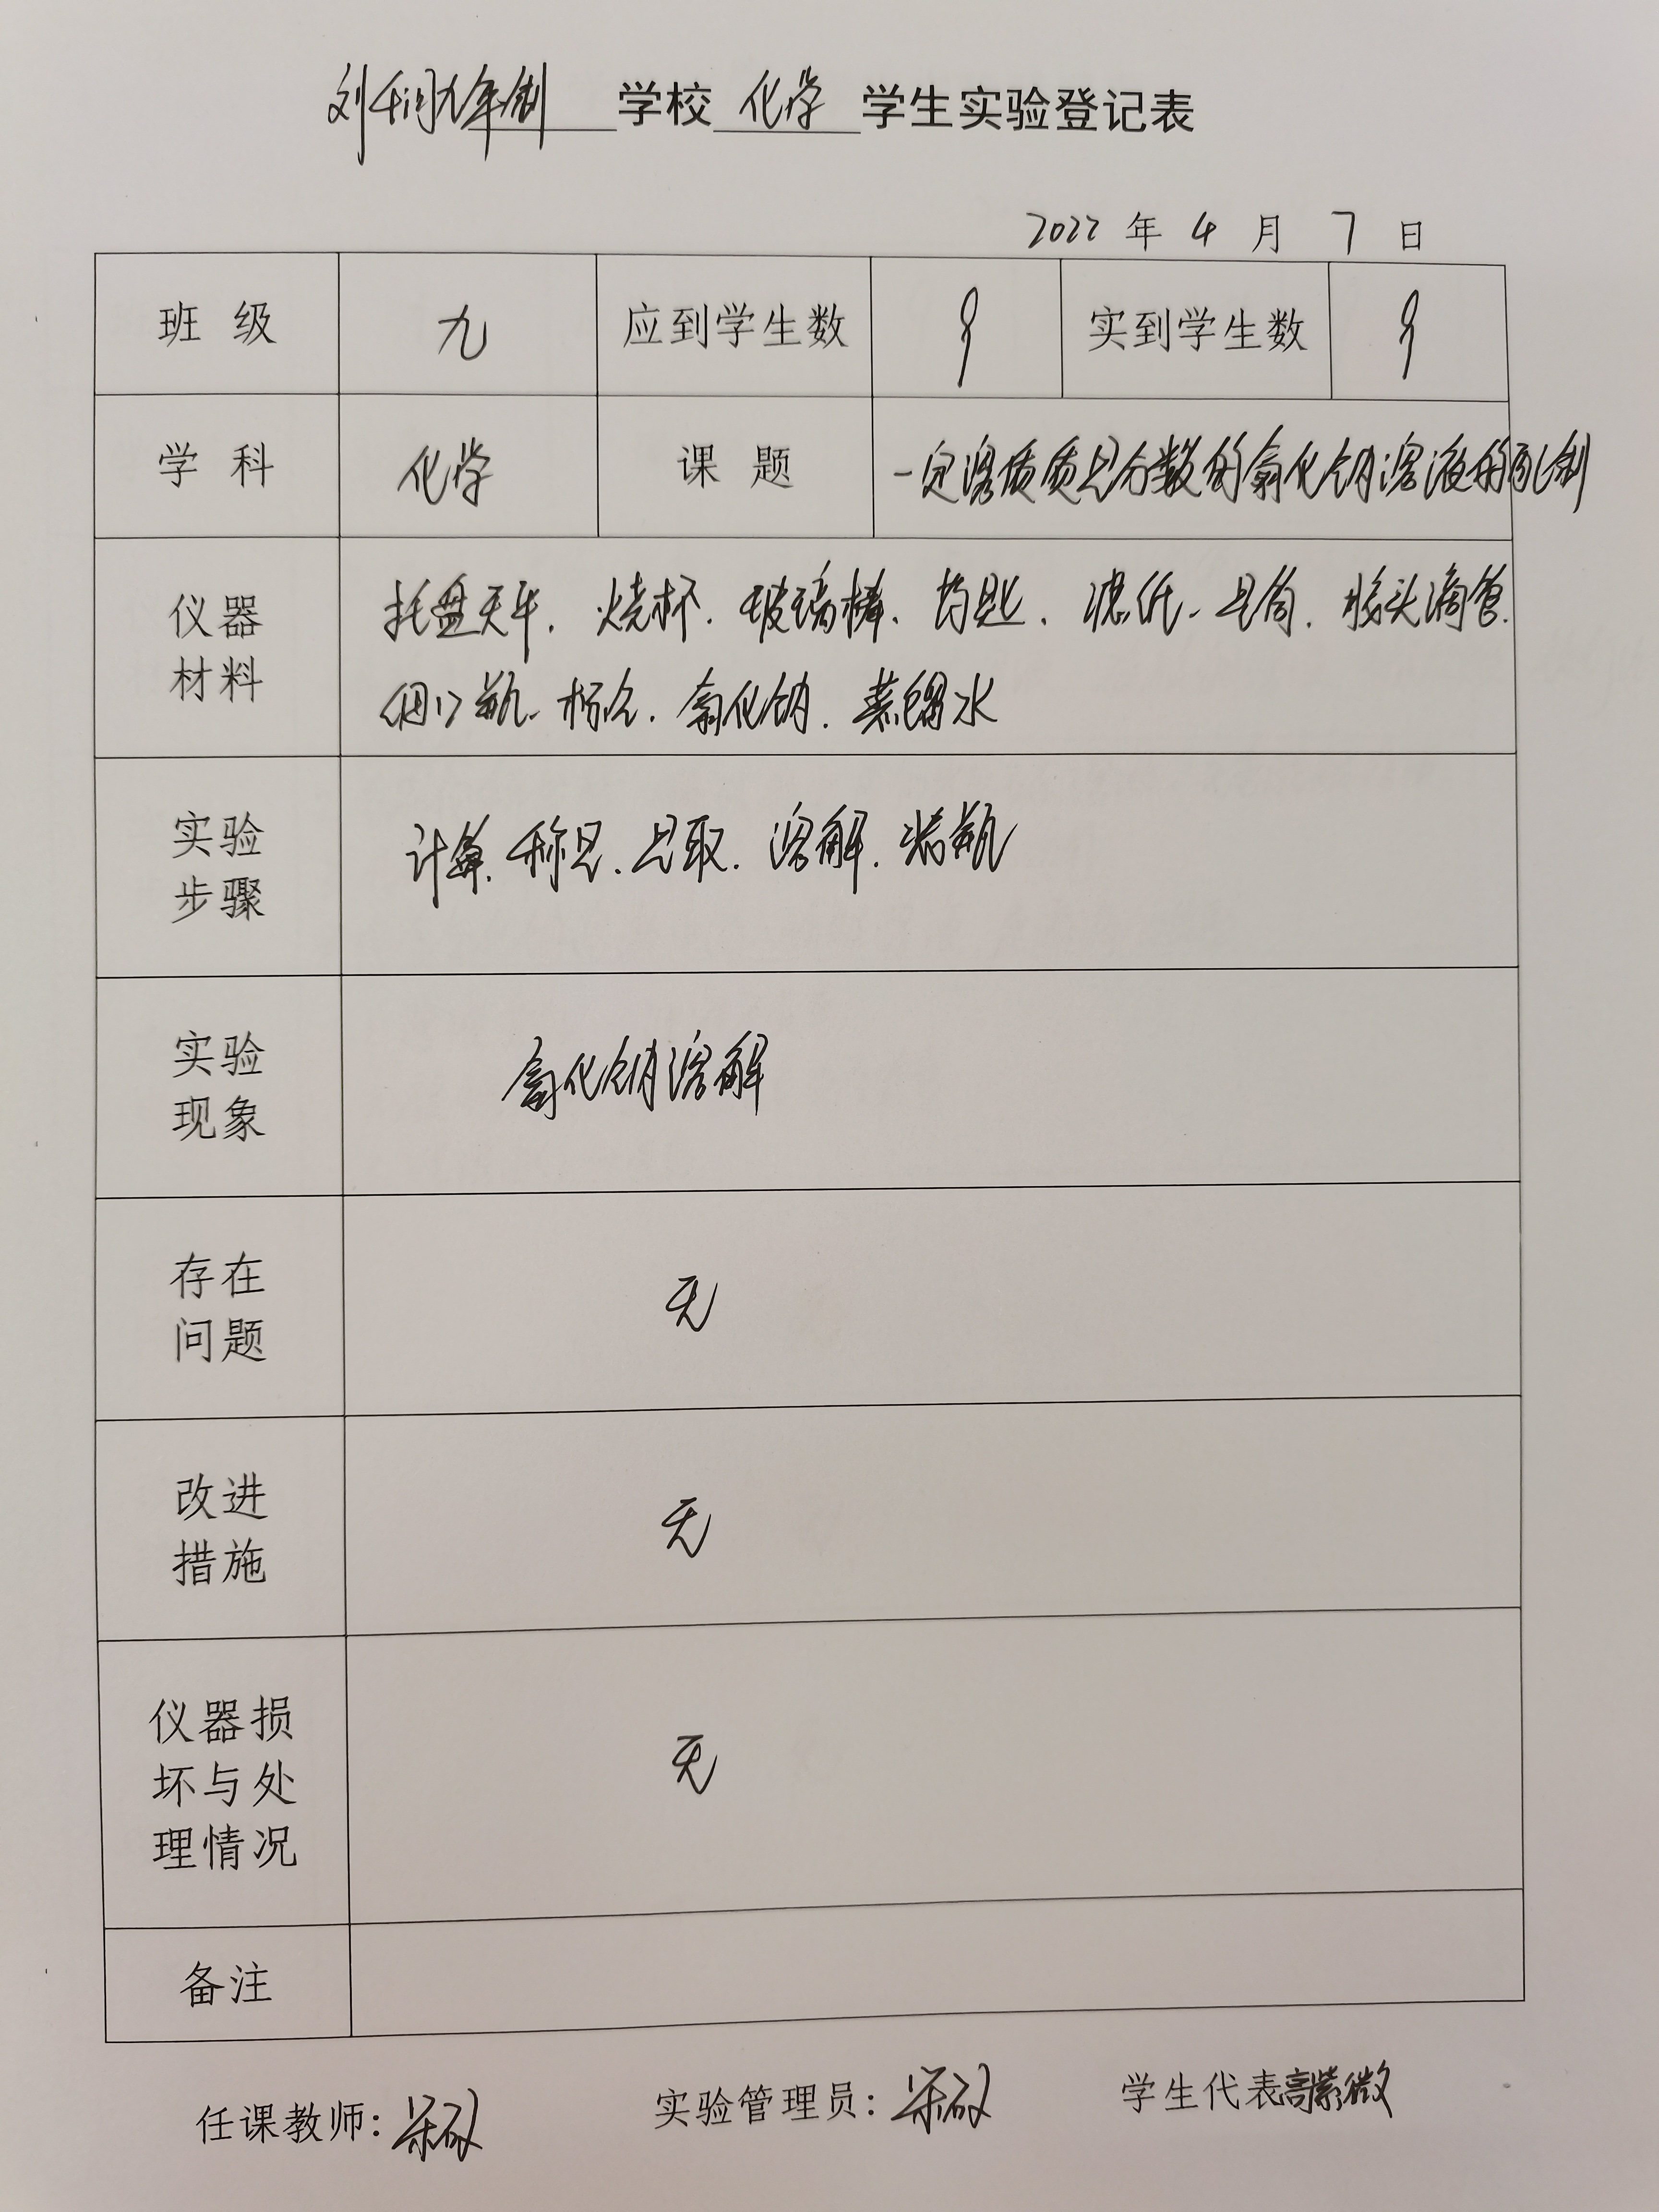 刘千润九年制学校 化学 学生实验登记表
2022 年 4 月 7 日
班 级 九 应到学生数 9 实到学生数 9
学 科 化学 课 题 一定溶质质量分数的氯化钠溶液的配制
仪器
材料
托盘天平、烧杯、玻璃棒、药匙、滤纸、量筒、胶头滴管、
细口瓶、标签、氯化钠、蒸馏水
实验
步骤
计算、称量、量取、溶解、装瓶
实验
现象
氯化钠溶解
存在
问题
无
改进
措施
无
仪器损
坏与处
理情况
无
备注
任课教师: 实验管理员: 学生代表高紫微